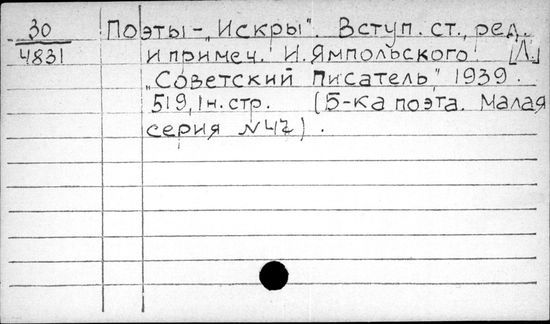 30
4831
Поэты-„Искры". Вступ. ст., ред.
и примеч. И. Ямпольского. [Л.]
„Советский Писатель", 1939.
519, 1н. стр. (Б-ка поэта. Малая
серия №42).